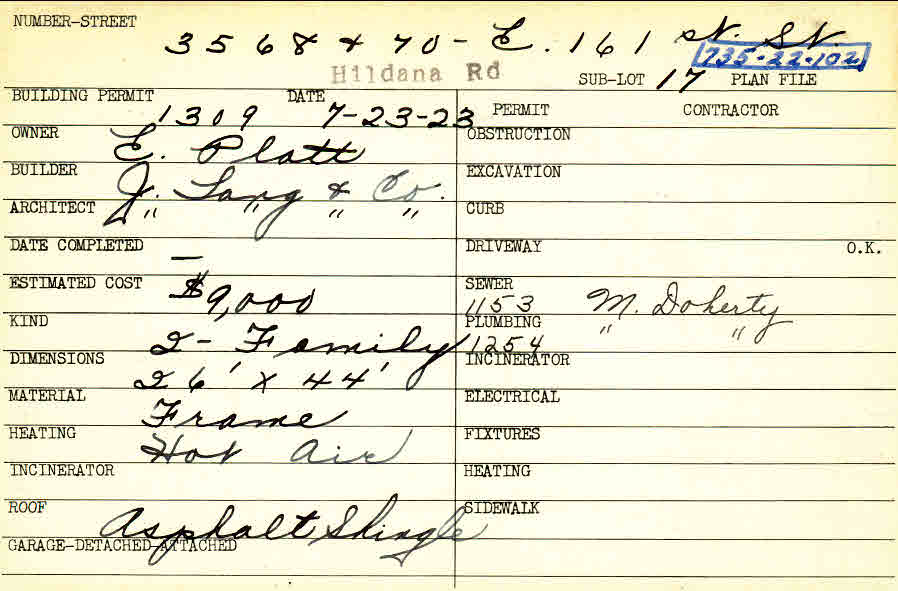 NUMBER-STREET
3568 & 70 - E. 161 St. St.
735-22-102
Hildana Rd SUB-LOT 17 PLAN FILE
BUILDING PERMIT DATE PERMIT CONTRACTOR
1309 7-23-23
OWNER E. Platt OBSTRUCTION
BUILDER J. Lang & Co. EXCAVATION
ARCHITECT " " " " CURB
DATE COMPLETED — DRIVEWAY O.K.
ESTIMATED COST $9,000 SEWER
1153 M. Doherty
KIND 2 - Family PLUMBING
1254 " "
DIMENSIONS 26' X 44' INCINERATOR
MATERIAL Frame ELECTRICAL
HEATING Hot Air FIXTURES
INCINERATOR HEATING
ROOF Asphalt Shingle SIDEWALK
GARAGE-DETACHED-ATTACHED